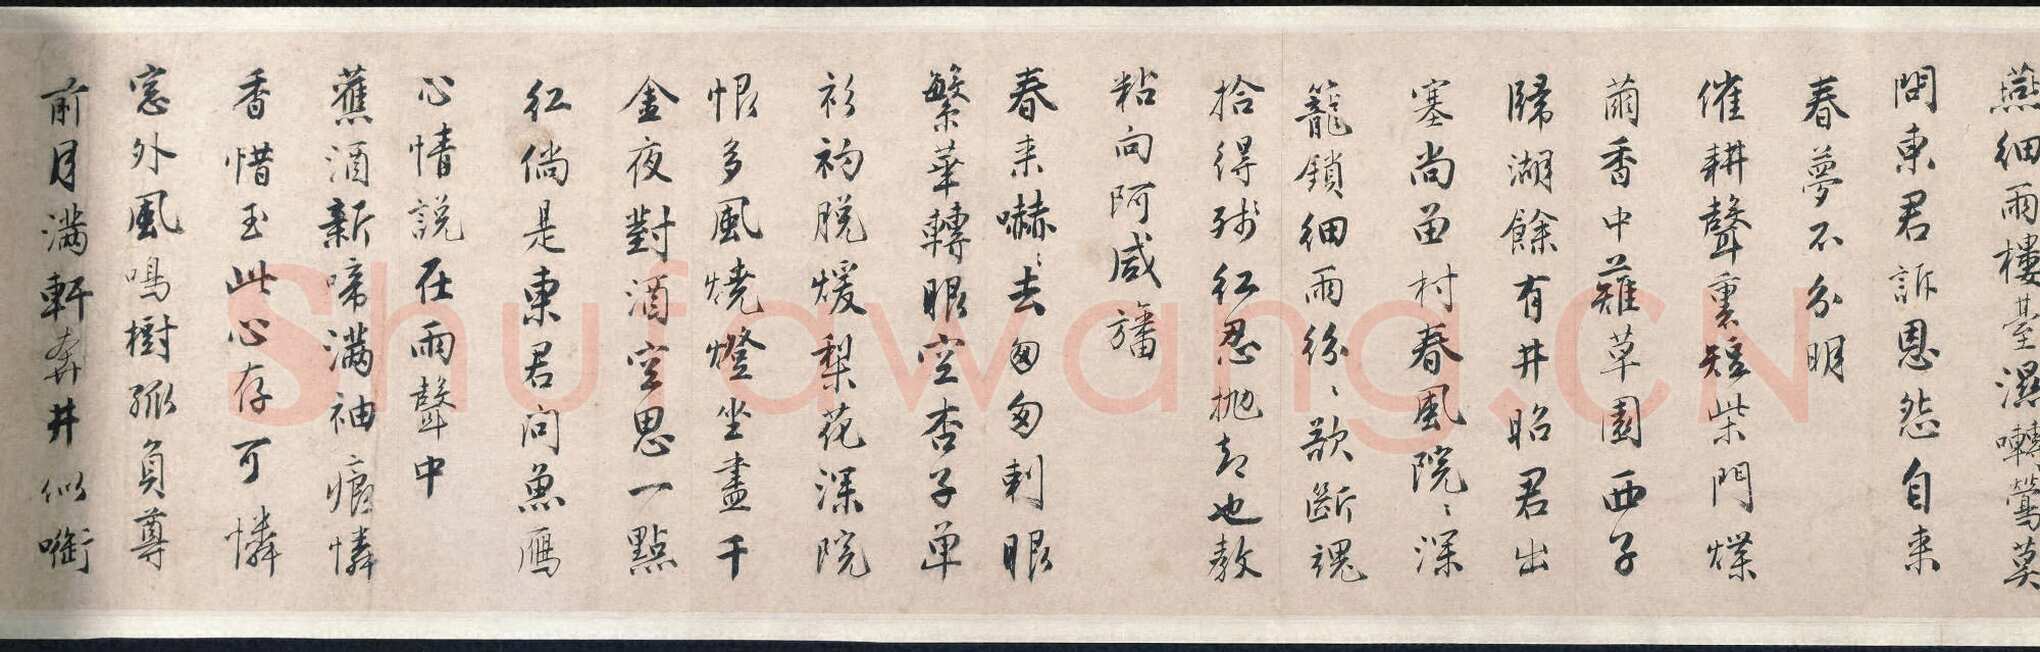 燕細雨樓臺濕囀鶯莫
問東君訴恩怨自来
春夢不分明
催耕聲裏短柴門蝶
繭香中薙草園西子
歸湖餘有井昭君出
塞尚留村春風院〻深
籠鎖細雨紛〻欲斷魂
拾得殘紅忍抛却也教
粘向阿咸旛
春来嚇〻去匆匆刺眼
繁華轉眼空杏子單
衫初脱煖梨花深院
恨多風燒燈坐盡千
金夜對酒空思一點
紅倘是東君问魚鴈
心情説在雨聲中
蕉酒新啼滿袖痕憐
香惜玉此心存可憐
窓外風鳴樹孤負尊
前月滿軒奔井似衝
shufawang.cn